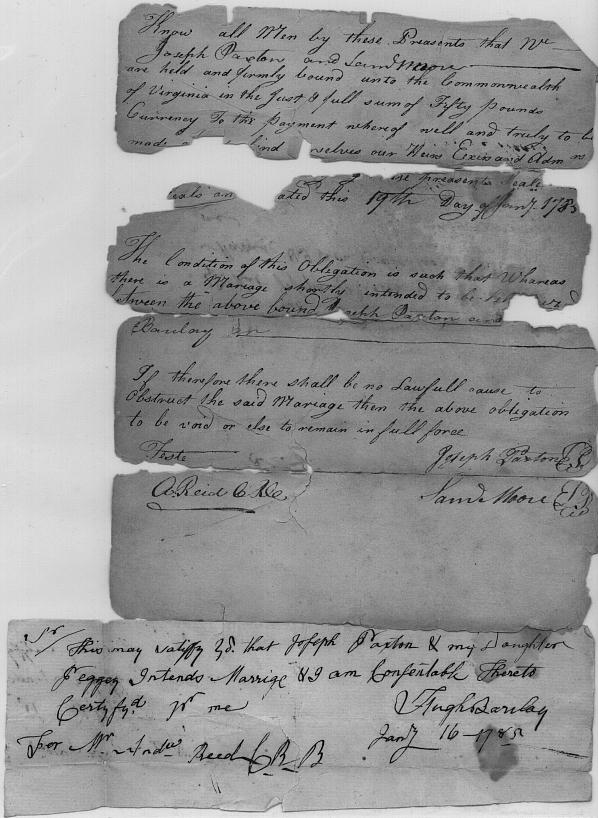 Know all Men by these Preasents that We
Joseph Paxton and Saml Moore
are held and firmly bound unto the Commonwealth
of Virginia in the Just & full sum of Fifty Pounds
Currency To the payment whereof well and truly to be
made bind selves our Heirs Exrs and Adm rs
preasents Seal
eals an ated this 19th Day of Jany 178
The Condition of this Obligation is such that Whereas
there is a Mariage shortly intended to be
tween the above bound seph Paxton and
Barclay
If therefore there shall be no Lawfull cause to
Obstruct the said Mariage then the above obligation
to be void or else to remain in full force
Teste Joseph Paxton
A. Reid Saml Moore
Sr
This may that Joseph Paxton & my Daughter
Peggey Intends Marrige & I am Consentable Thereto
Certifyd pr me Hugh Barclay
For Mr Andw Reed C R B Jany 16 - 178